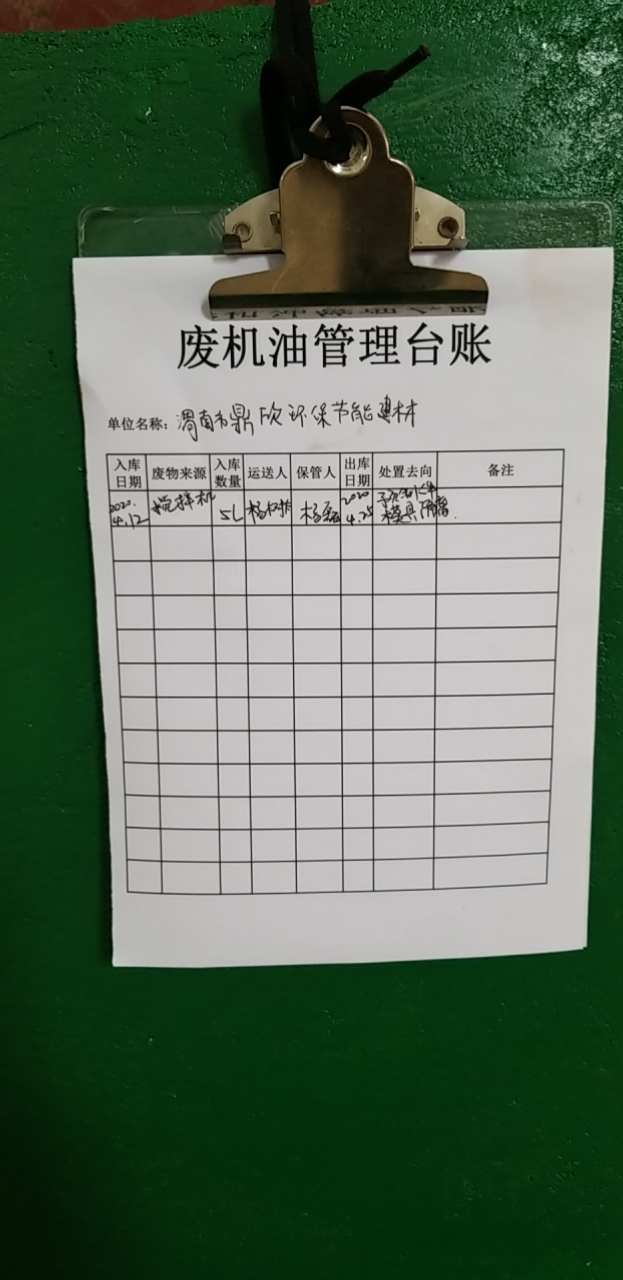 废机油管理台账
单位名称：渭南市鼎欣环保节能建材
入库日期 废物来源 入库数量 运送人 保管人 出库日期 处置去向 备注
2020.4.12 搅拌机 5L 杨 杨磊 2020 4.25 模具隔离.